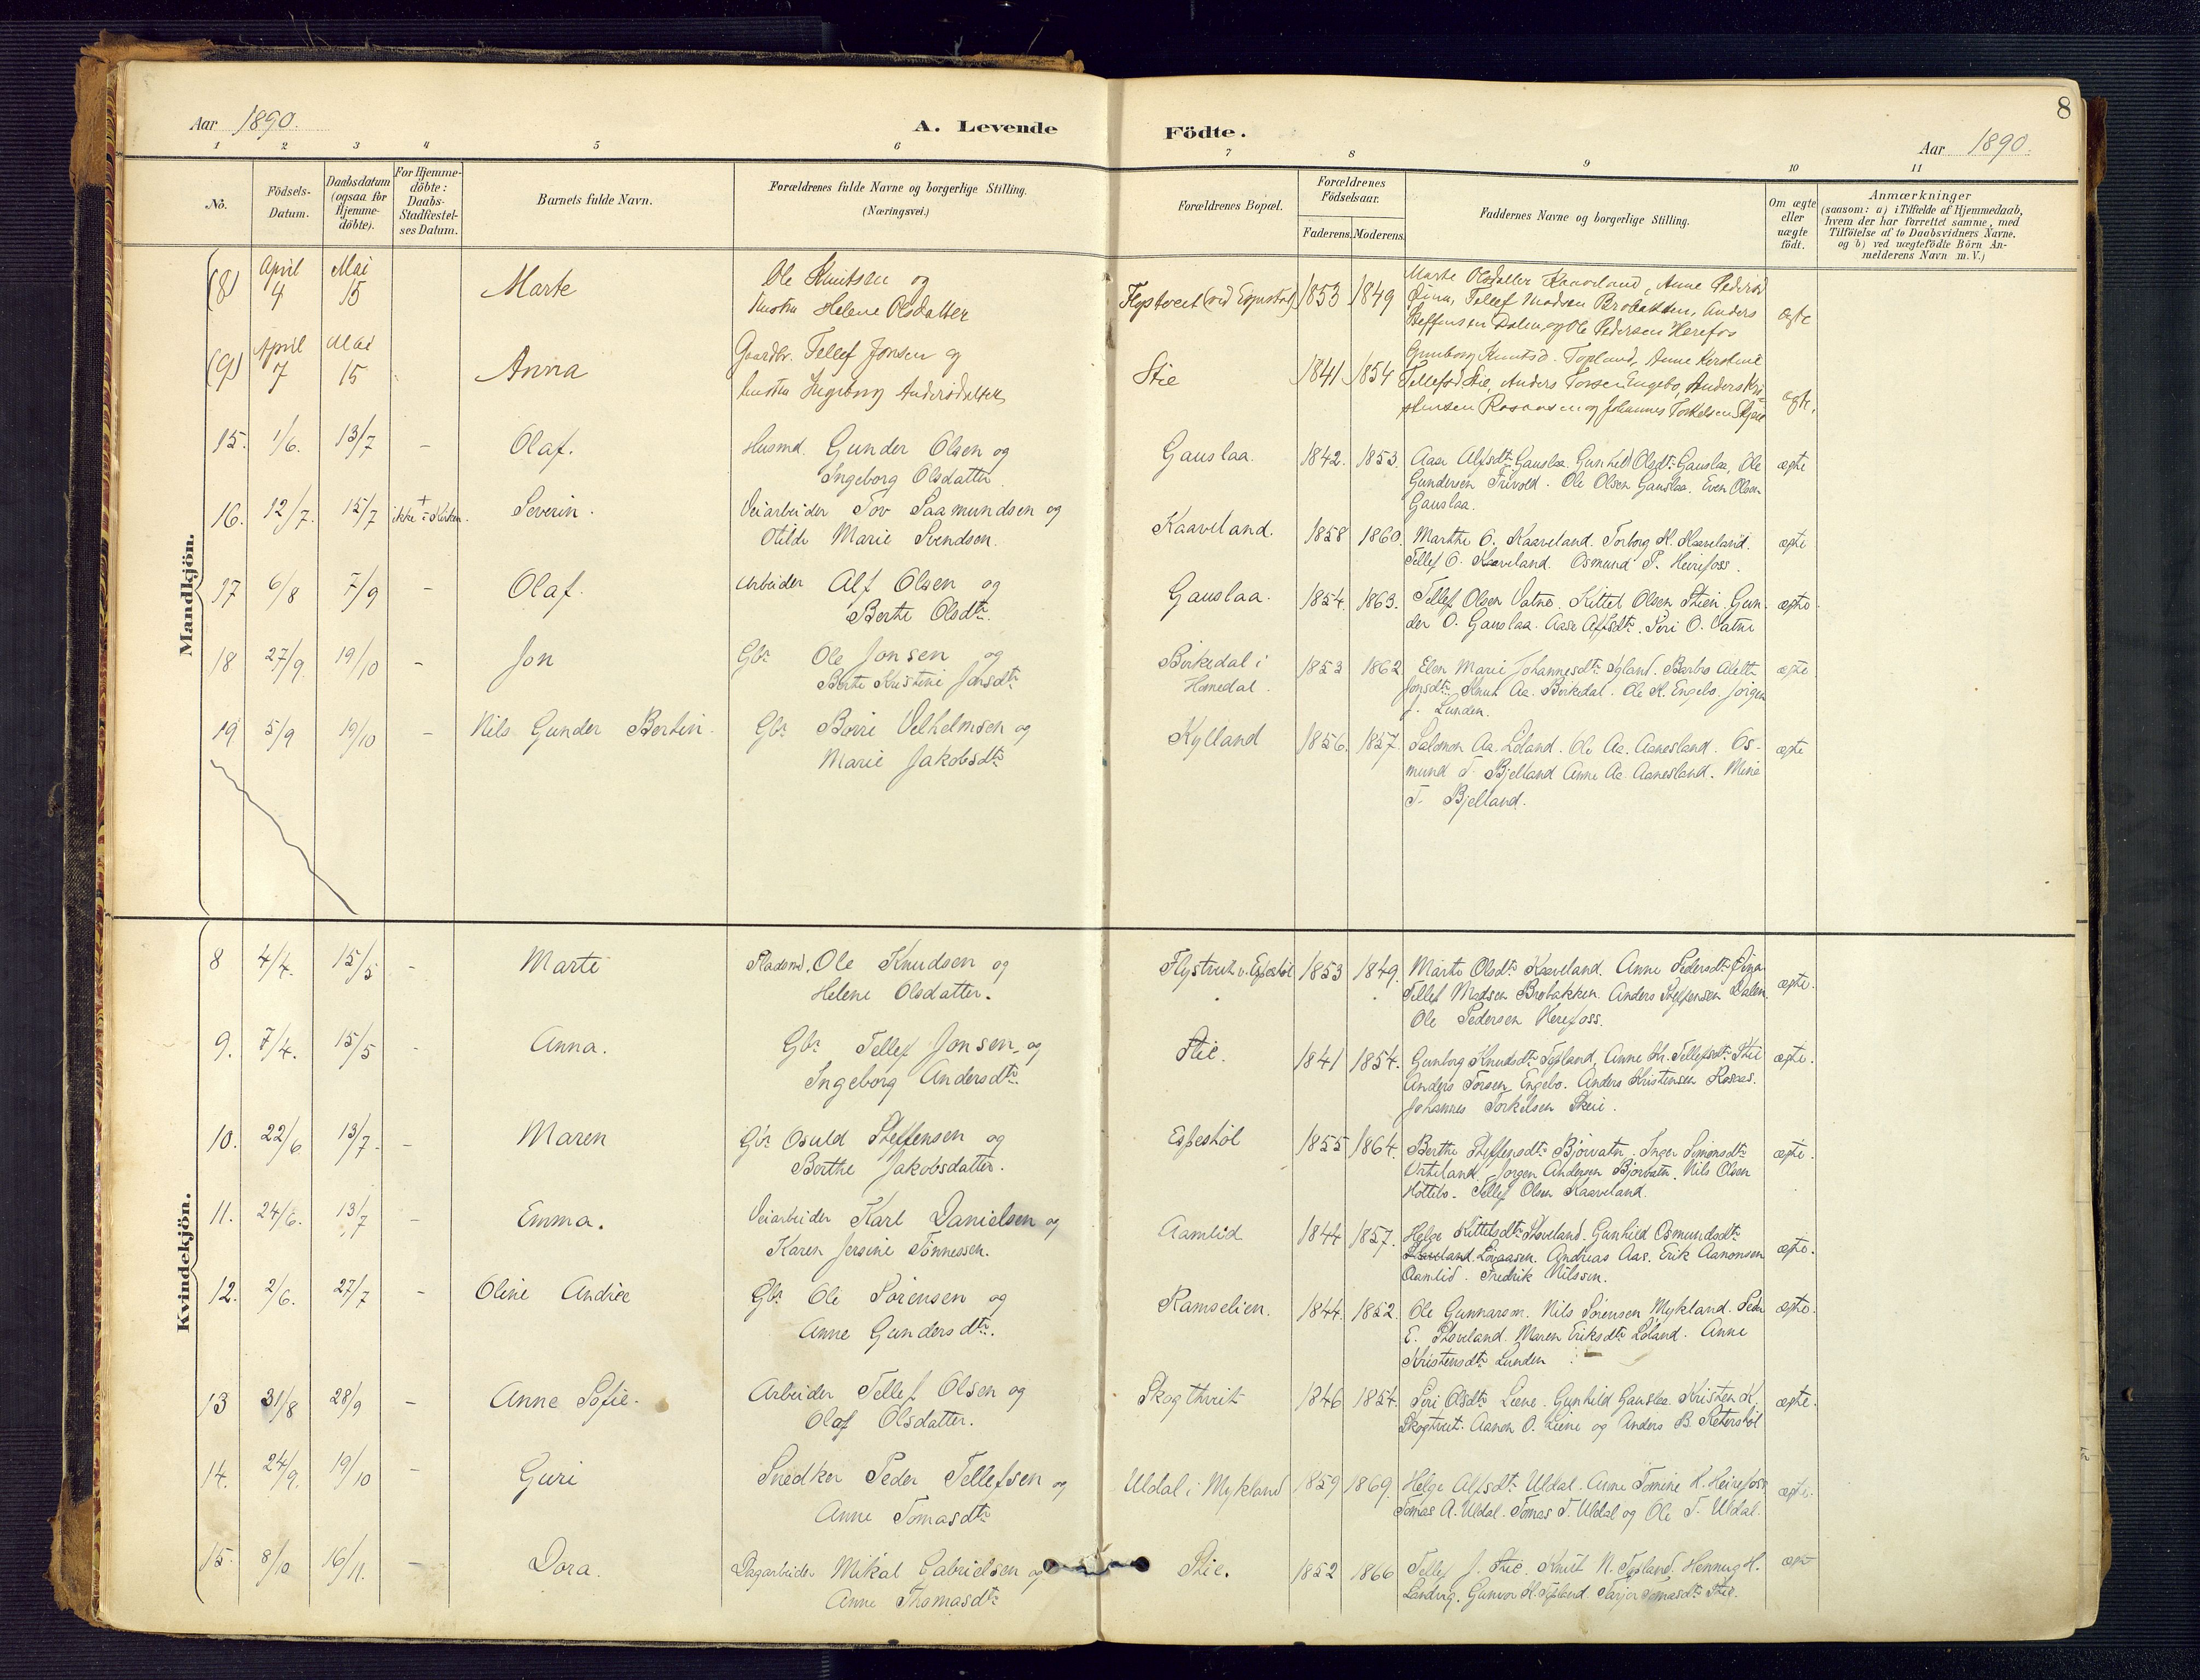 8
Aar 1890.
A. Levende Födte.
Aar 1890.
1 2 3 4 5 6 7 8 9 10 11
No.
Födsels-
Datum.
Daabsdatum
(ogsaa for
Hjemme-
döbte).
For Hjemme-
döbte:
Daabs-
Stadfæstel-
ses Datum.
Barnets fulde Navn.
Forældrenes fulde Navne og borgerlige Stilling.
(Næringsvei.)
Forældrenes Bopæl.
Forældrenes
Födselsaar.
Faderens. Moderens.
Faddernes Navne og borgerlige Stilling.
Om ægte
eller
uægte
födt.
Anmærkninger
(saasom: a) i Tilfælde af Hjemmedaab,
hvem der har forrettet samme, med
Tilföielse af to Daabsvidners Navne.
og b) ved uægtefödte Börn An-
melderens Navn m. V.)
Mandkjön.
(8) April 4 Mai 15 Marte
Ole Knutsen og
Kustru Helene Olsdatter
1853 1849
Marte Olsdatter Kaaveland, Anne Pedersd
Tellef Madsen Brobakken, Anders
Steffensen Dalen og Ole Pedersen Herefos
ægte
(9) April 7 Mai 15 Anna
Gaardbr. Tellef Jonsen og
Kustru Ingeborg Andersdatter
Stie 1841 1854
Gunborg Knutsd. Topland, Anne Kirstine
Tellefsd Stie, Anders Torsen Engebo, Anders Kri-
stensen Rosaasen og Johannes Torkelsen
ægte.
15. 1/6. 13/7 – Olaf.
Husmd. Gunder Olsen og
Ingeborg Olsdatter.
Gauslaa. 1842. 1853.
Aase Alfsdtr Gauslaa. Gunhild Olsdtr Gauslaa, Ole
Gundersen Trivold. Ole Olsen Gauslaa. Even Olsen
Gauslaa.
ægte
16. 12/7. 15/7 + ikke i Kirken. Severin.
Veiarbeider Tov Saamundsen og
Otilde Marie Svendsen.
Kaaveland. 1858 1860.
Marthe O. Kaaveland. Torborg K. Kaaveland.
Tellef O. Kaaveland. Osmund P. Heirefoss.
ægte
17 6/8 7/9 – Olaf.
Arbeider Alf Olsen og
Berthe Olsdtr.
Gauslaa. 1854. 1863.
Tellef Olsen Vatne. Kittel Olsen Stien. Gun-
der O. Gauslaa. Aase Alfsdtr. Siri O. Vatne
ægte
18 27/9. 19/10 – Jon
Gbr. Ole Jonsen og
Berte Kristine Jonsdtr
Birkedal i
Hamedal. 1853 1862
Elen Marie Johannesdtr Igland. Barbro Alett
Jonsdtr. Knut Aa. Birkdal. Ole K. Engebo. Jörgen
J. Lunden.
ægte
19 5/9 19/10 – Nils Gunder Bertin.
Gbr. Börre Velhelmsen og
Marie Jakobsdtr
Kylland 1856. 1857.
Salomon Aa. Löland. Ole Aa. Aanesland. Os-
mund T. Bjelland Anne Aa. Aanesland. Mine
T. Bjelland.
ægte
Kvindekjön.
8 4/4. 15/5 – Marte
Pladsmd. Ole Knudsen og
Helene Olsdatter.
1853 1849.
Marte Olsdtr Kaaveland. Anne Pedersdtr
Tellef Madsen Brobakken. Anders Steffensen Dalen.
Ole Pedersen Herefoss.
ægte.
9. 7/4. 15/5 – Anna.
Gbr Tellef Jonsen og
Ingeborg Andersdtr.
Stie. 1841 1854.
Gunborg Knudsdtr Topland, Anne Kr. Tellefsdtr Stie
Anders Torsen Engebo. Anders Kristensen Rosaas.
Johannes Torkelsen Skeie.
ægte.
10. 22/6 13/7. – Maren
Gbr Osuld Steffensen og
Berthe Jakobsdatter.
Espestöl 1855 1864.
Berthe Steffensdtr Björvatn. Inger Simonsdtr
Jörgen Andersen Björvatn. Nils Olsen
Tellef Olsen Kaaveland.
ægte.
11. 24/6. 13/7 – Emma.
Veiarbeider Karl Danielsen og
Karen Jersine Tönnessen.
Aamlid 1844 1857.
Helge Kittelsdtr Gunhild Osmundsdtr
Lövaasen. Andreas Aas. Erik Aanonsen
Aamlid. Fredrik Nilssen.
ægte.
12. 2/6. 27/7 – Oline Andrea
Gbr Ole Sörensen og
Anne Gundersdtr.
Ramselien. 1844. 1852.
Ole Gunnarsm. Nils Sörensen Mykland. Peder
E. Maren Eriksdtr Löland. Anne
Kristensdtr Lunden
ægte.
13 31/8 28/9 – Anne Sofie.
Arbeider Tellef Olsen og
Olaf Olsdatter.
Skogthveit 1846 1854.
Siri Olsdtr Liene. Gunhild Gauslaa. Kristen K.
Skogtveit. Aanon O. Liene og Anders B.
ægte.
14. 24/9. 19/10 – Guri
Snedker Peder Tellefsen og
Anne Tomasdtr
Uldal i Mykland 1859 1869.
Helge Alfsdtr Uldal. Anne Tomine K. Heirefoss
Tomas A. Uldal. Tomas T. Uldal og Ole T. Uldal.
ægte.
15. 8/10 16/11. – Dora.
Dagarbeider Mikal Gabrielsen og
Anne Thomasdtr
Stie. 1852 1866
Tellef J. Stie. Knut N. Topland. Henning H.
Landvig. Gunvor K. Topland. Tarjer Tomasdtr Stie.